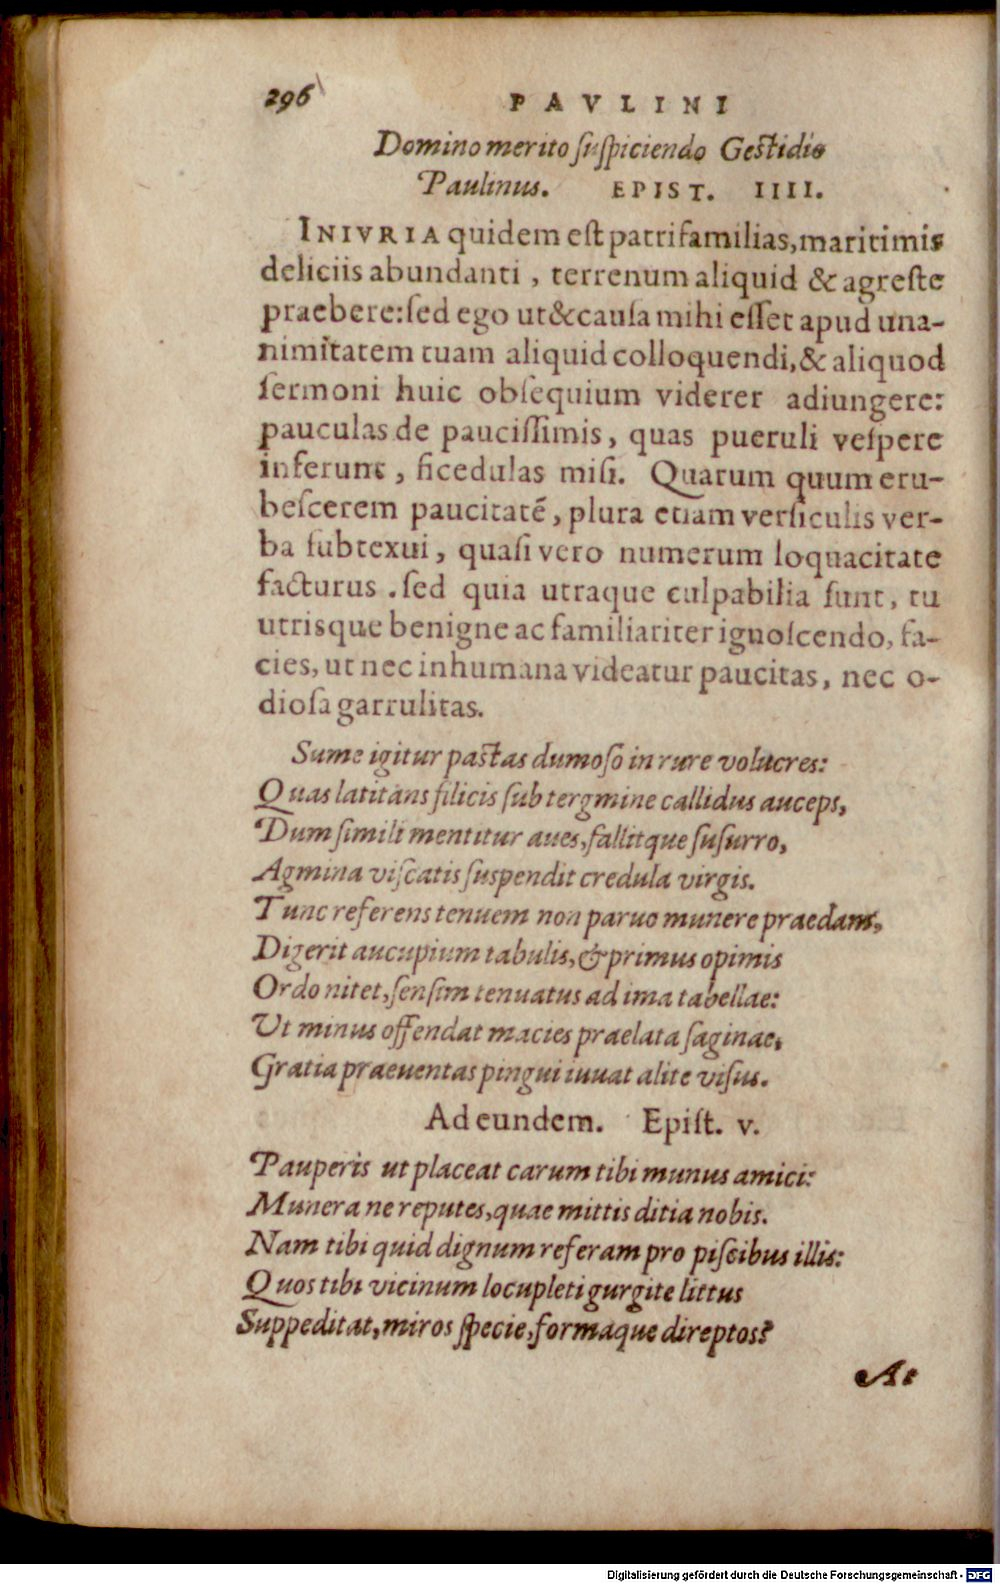 296
PAVLINI
Domino merito ſuſpiciendo Geſtidio
Paulinus. EPIST. IIII.
INIVRIA quidem eſt patrifamilias, maritimis
deliciis abundanti, terrenum aliquid & agreſte
praebere: ſed ego ut & cauſa mihi eſſet apud una-
nimitatem tuam aliquid colloquendi, & aliquod
ſermoni huic obſequium viderer adiungere:
pauculas de pauciſſimis, quas pueruli veſpere
inferunt, ficedulas miſi. Quarum quum eru-
beſcerem paucitatē, plura etiam verſiculis ver-
ba ſubtexui, quaſi vero numerum loquacitate
facturus. ſed quia utraque culpabilia ſunt, tu
utriſque benigne ac familiariter ignoſcendo, fa-
cies, ut nec inhumana videatur paucitas, nec o-
dioſa garrulitas.
Sume igitur paſtas dumoſo in rure volucres:
Quas latitans filicis ſub tergmine callidus auceps,
Dum ſimili mentitur aues, fallitque ſuſurro,
Agmina viſcatis ſuspendit credula virgis.
Tunc referens tenuem non paruo munere praedam,
Digerit aucupium tabulis, & primus opimis
Ordo nitet, ſenſim tenuatus ad ima tabellae:
Vt minus offendat macies praelata ſaginae,
Gratia praeuentas pingui iuuat alite viſus.
Ad eundem. Epiſt. v.
Pauperis ut placeat carum tibi munus amici:
Munera ne reputes, quae mittis ditia nobis.
Nam tibi quid dignum referam pro piſcibus illis:
Quos tibi vicinum locupleti gurgite littus
Suppeditat, miros ſpecie, formaque direptos?
At
Digitalisierung gefördert durch die Deutsche Forschungsgemeinschaft - DFG